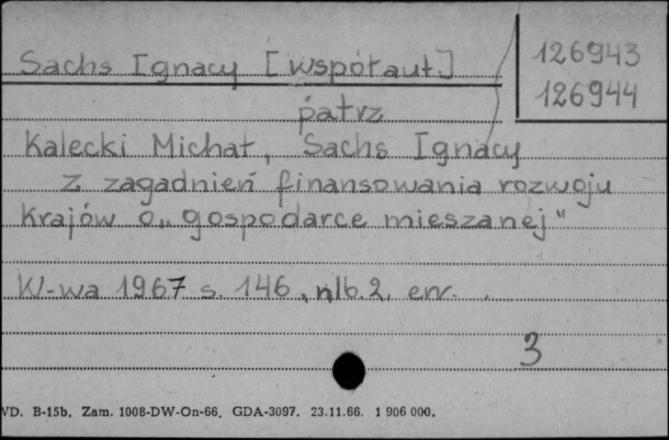 Sachs Ignacy [współaut.]
126943
126944
patrz
Kalecki Michał, Sachs Ignacy
Z zagadnień finansowania rozwoju
Krajów o „gospodarce mieszanej"
W-wa 1967 s. 146, nlb. 2, err.
3
VD. B-15b. Zam. 1008-DW-On-66. GDA-3097. 23.11.66. 1 906 000.